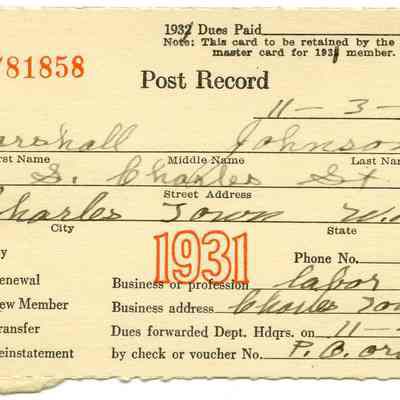 1932 Dues Paid
Note: This card to be retained by the
master card for 1931 member.
781858
Post Record
11-3-
arshall Johnson
irst Name Middle Name Last Nam
S. Charles St
Street Address
Charles Town W.
City State
y 1931 Phone No.
enewal Business or profession labor
ew Member Business address Charles Tow
ransfer Dues forwarded Dept. Hdqrs. on 11-
einstatement by check or voucher No. P.O. or